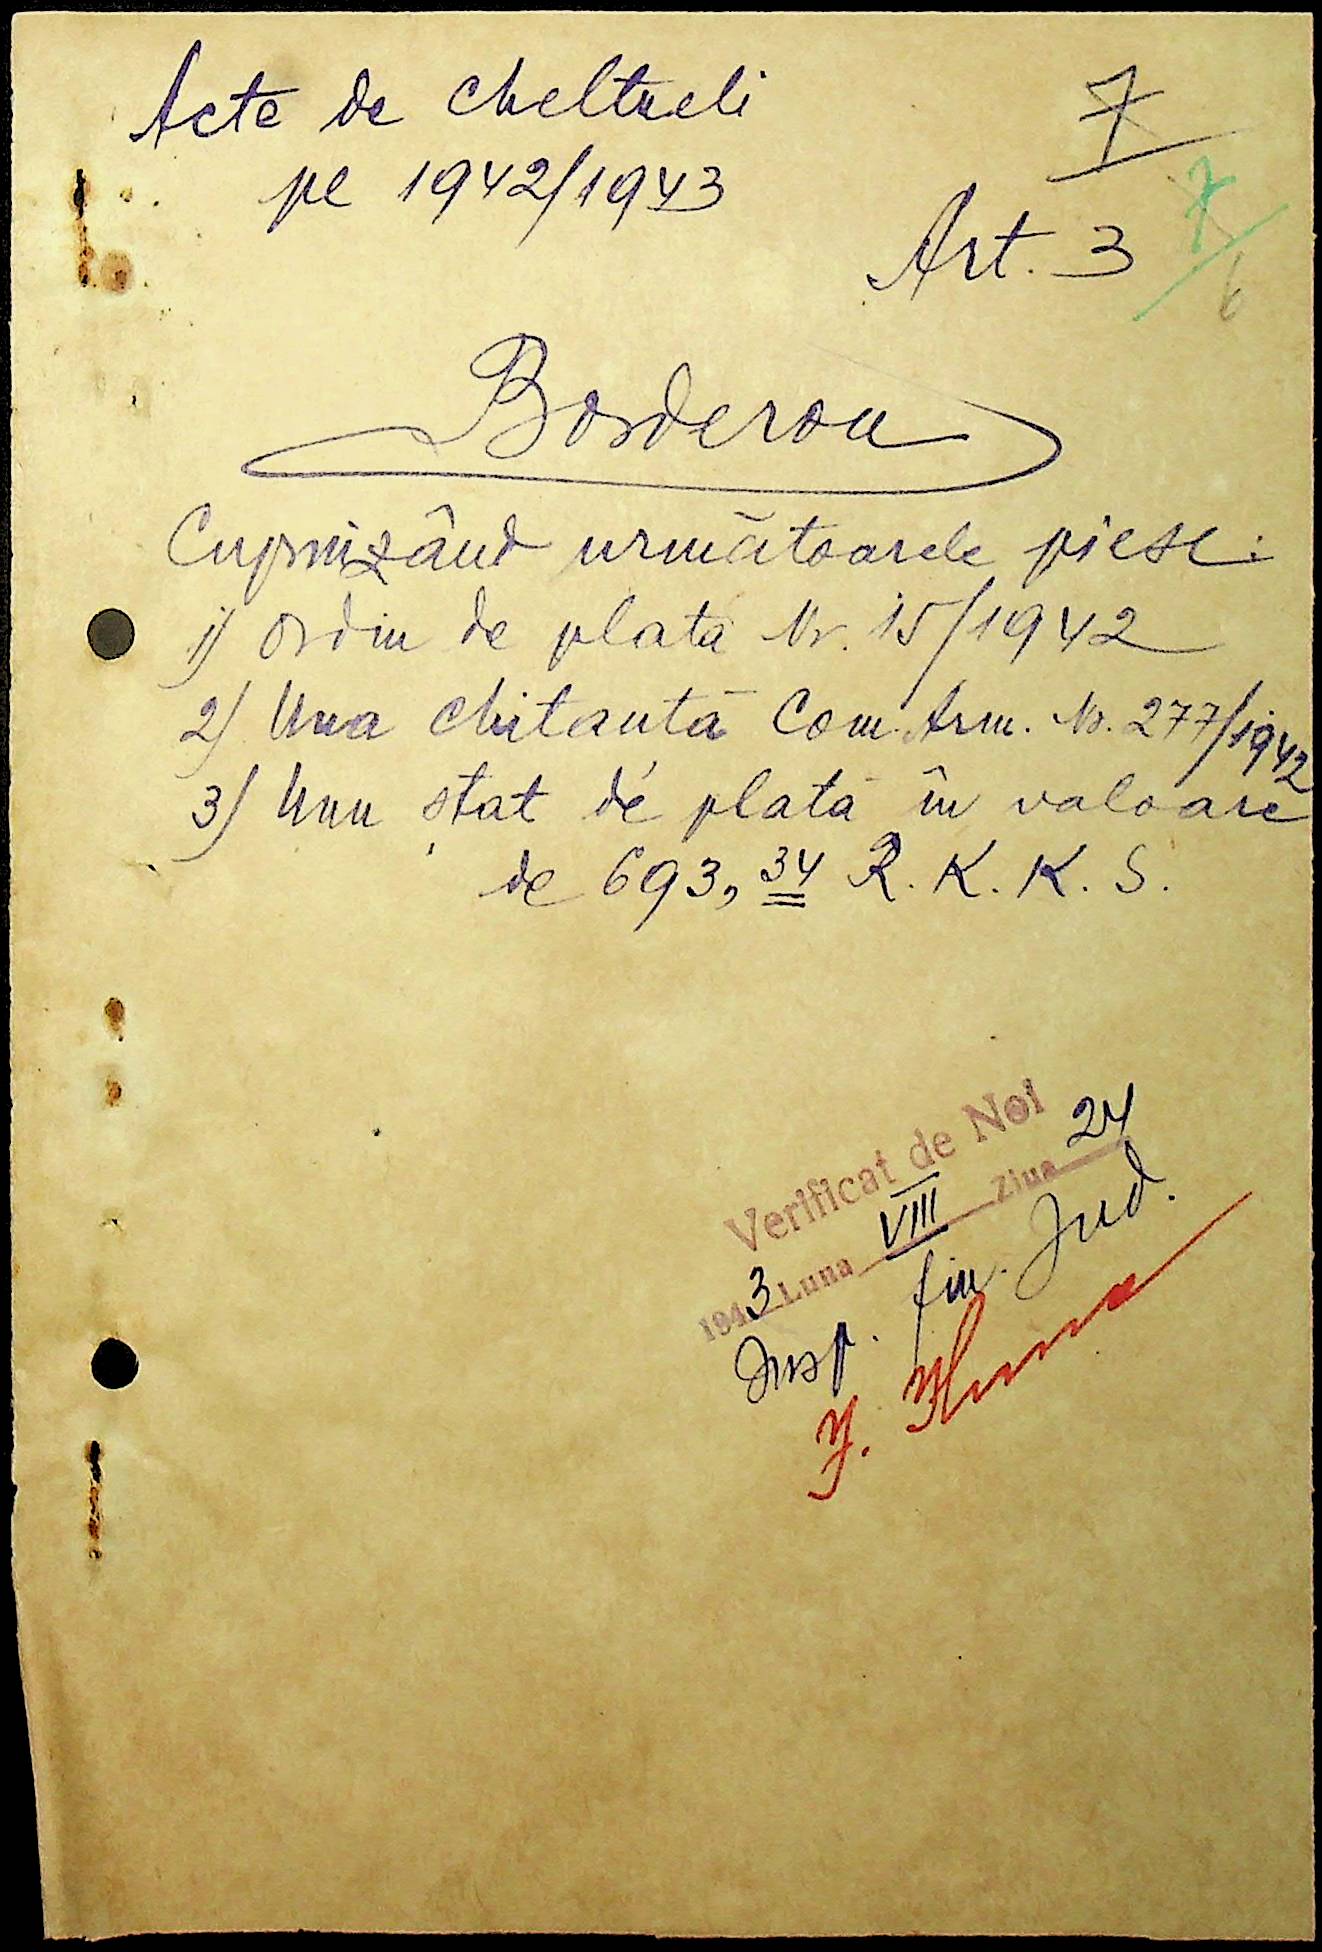 Acte de cheltueli
pe 1942/1943
7
7
6
Art. 3
Borderou
Cuprinzând următoarele piese:
1) Ordin de plată Nr. 15/1942
2) Una chitantă Com. Arm. No. 277/1942
3) Unu stat de plată în valoare
de 693,34 R. K. K. S.
Verificat de Noi
1943 Luna VIII Ziua 24
Insp. fin. Jud.